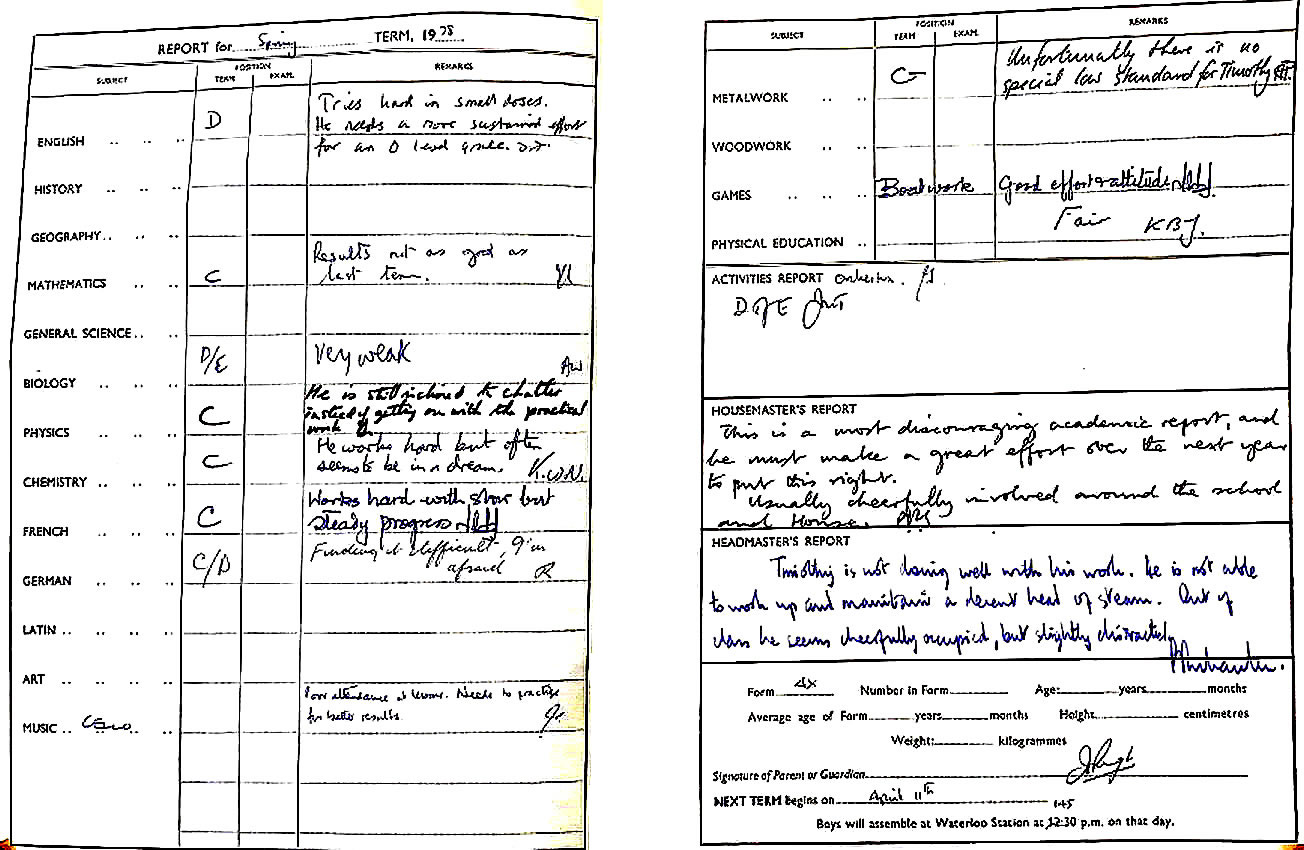 REPORT for Spring TERM, 1978
SUBJECT
POSITION
TERM EXAM.
REMARKS
ENGLISH .. .. ..
D
Tries hard in small doses.
He needs a more sustained effort
for an O level grade.
HISTORY .. .. ..
GEOGRAPHY .. .. ..
MATHEMATICS .. ..
C
Results not as good as
last term.
GENERAL SCIENCE .. ..
BIOLOGY .. .. ..
D/E
Very weak
AW
PHYSICS .. .. ..
C
He is still inclined to chatter
instead of getting on with the practical
work
CHEMISTRY .. .. ..
C
He works hard but often
seems to be in a dream. K.W.N.
FRENCH .. .. ..
C
Works hard with slow but
steady progress
GERMAN .. .. ..
C/D
Finding it difficult, I'm
afraid
LATIN .. .. .. ..
ART .. .. .. ..
MUSIC .. Cello .. ..
Poor attendance at lessons. Needs to practise
for better results.
SUBJECT
POSITION
TERM EXAM.
REMARKS
METALWORK .. ..
Unfortunately there is no
special low standard for Timothy
WOODWORK .. ..
GAMES .. .. ..
Boatwork
Good effort & attitude
PHYSICAL EDUCATION ..
Fair KBJ.
ACTIVITIES REPORT Orchestra.
D of E
HOUSEMASTER'S REPORT
This is a most discouraging academic report, and
he must make a great effort over the next year
to put this right.
Usually cheerfully involved around the school
and House.
HEADMASTER'S REPORT
Timothy is not doing well with his work. He is not able
to work up and maintain a decent head of steam. Out of
class he seems cheerfully occupied, but slightly distractedly
Form 4X Number in Form Age: years months
Average age of Form years months Height centimetres
Weight: kilogrammes
Signature of Parent or Guardian
NEXT TERM begins on April 11th
1.45
Boys will assemble at Waterloo Station at 12:30 p.m. on that day.